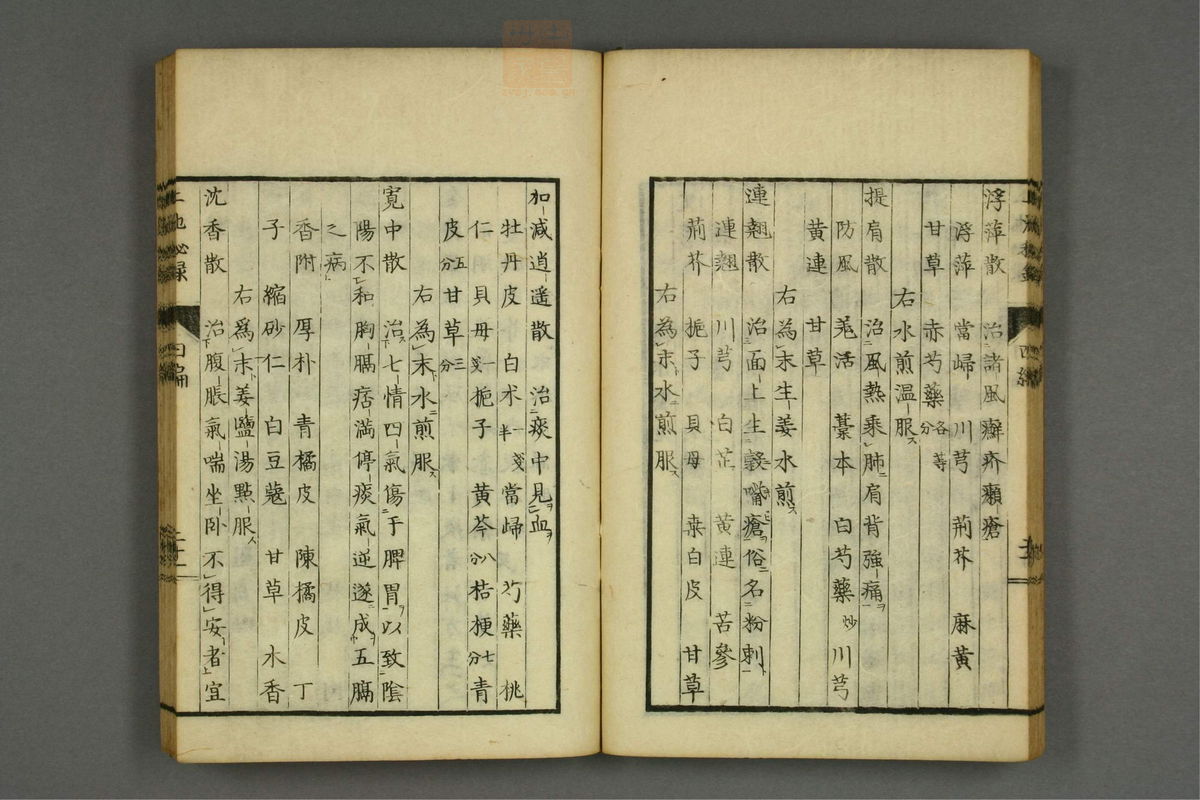 浮萍散　治諸風癬疥癩瘡
浮萍　當歸　川芎　荊芥　麻黄
甘草　赤芍藥各等分
右水煎温服ス
提肩散　治風熱乘肺肩背強痛ヲ
防風　羗活　藁本　白芍藥炒　川芎
黄連　甘草
右為末生姜水煎ス
連翹散　治面上生瘡俗名粉刺
連翹　川芎　白芷　黄連　苦參
荊芥　梔子　貝母　桒白皮　甘草
右為末水煎服ス
加減逍遥散　治痰中見血ヲ
牡丹皮　白朮一戔半　當帰　芍藥　桃
仁　貝母一戔　梔子　黄芩八分　桔梗七分　青
皮五分　甘草三分
右為末水煎服ス
寛中散　治七情四氣傷于脾胃以致陰
陽不和胸膈痞満停痰氣逆遂成五膈
之病
香附　厚朴　青橘皮　陳橘皮　丁
子　縮砂仁　白豆蔲　甘草　木香
右爲末姜鹽湯點服ス
沈香散　治腹脹氣喘坐臥不得安者宜
四編